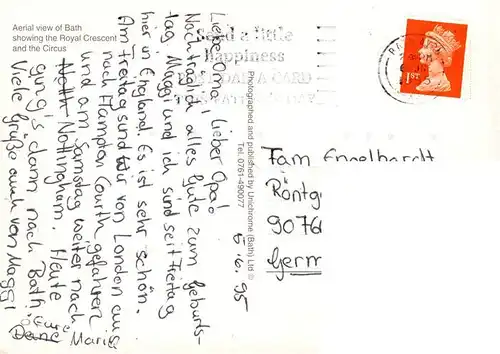 Aerial view of Bath
showing the Royal Crescent
and the Circus
Liebe Oma, lieber Opa!
Nachträglich alles Gute zum Geburts-
tag. Muggi und ich sind seit Freitag
hier in England. Es ist sehr schön.
Am Freitag sind wir von London aus
nach Hampton Courth gefahren
und am Samstag weiter nach
Nottingham. Heute
ging's dann nach Bath.
Viele Grüße auch von Muggi
Eure
Deine Marie
5.6.95
Photographed and published by Unichrome (Bath) Ltd ©
Tel: 0761-490077
Send a little
happiness
1ST
Fam Engelhardt
Röntg
9076
Germ